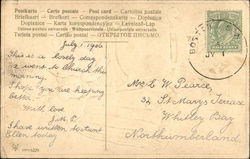 Postkarte Carte postale Post card
Briefkaart Brefkort Correspondenzkarte Dopisnice
Dopisnica Karta korespondencyjna Levelező-Lap
Unione postale universale Weltpostverein Union postale universelle
Cartolina postale ОТКРЫТОЕ ПИСЬМО
July 1906
This is a lovely day
we went to church this
morning.
I hope you are keeping
better.
With love
I have written
Ellen today
Mrs W. Pearce,
34 St Mary's Terrace
Whitley Bay
Northumberland